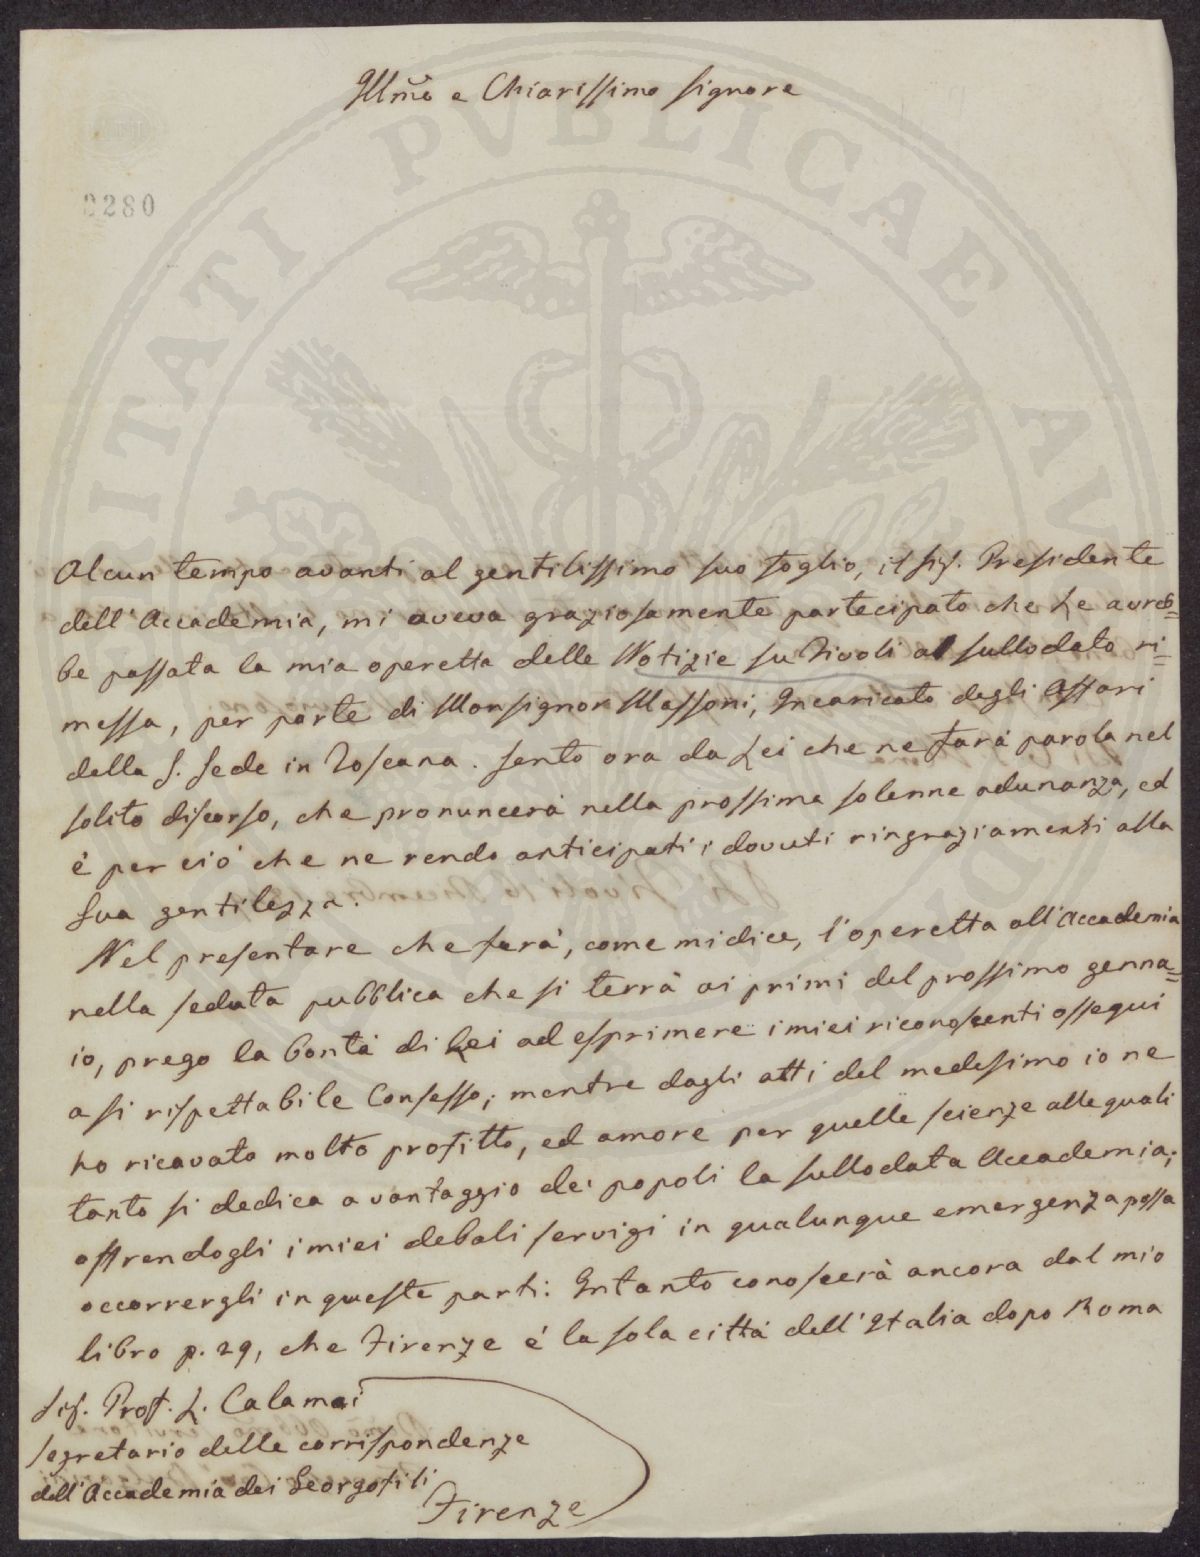 Illmo e Chiarissimo Signore
PVBLICAE
RITATI
AV
0280
Alcun tempo avanti al gentilissimo suo foglio, il Sig. Presidente
dell'Accademia, mi aveva graziosamente partecipato che Le avreb=
be passata la mia operetta delle Notizie su Tivoli al sullodato ri=
messa, per parte di Monsignor Massoni, Incaricato degli Affari
della S. Sede in Toscana. Sento ora da Lei che ne farà parola nel
solito discorso, che pronuncerà nella prossima solenne adunanza, ed
è per ciò che ne rendo anticipati i dovuti ringraziamenti alla
Sua gentilezza.
Nel presentare che farà, come mi dice, l'operetta all'Accademia
nella seduta pubblica che si terrà ai primi del prossimo genna=
io, prego la bontà di Lei ad esprimere i miei riconoscenti ossequi
a si rispettabile Consesso; mentre dagli atti del medesimo io ne
ho ricavato molto profitto, ed amore per quelle scienze alle quali
tanto si dedica a vantaggio dei popoli la sullodata Accademia;
offrendogli i miei deboli servigi in qualunque emergenza possa
occorrergli in queste parti: Intanto conoscerà ancora dal mio
libro p. 29, che Firenze è la sola città dell'Italia dopo Roma
Sig. Prof. L. Calamai
Segretario delle corrispondenze
dell'Accademia dei Georgofili
Firenze